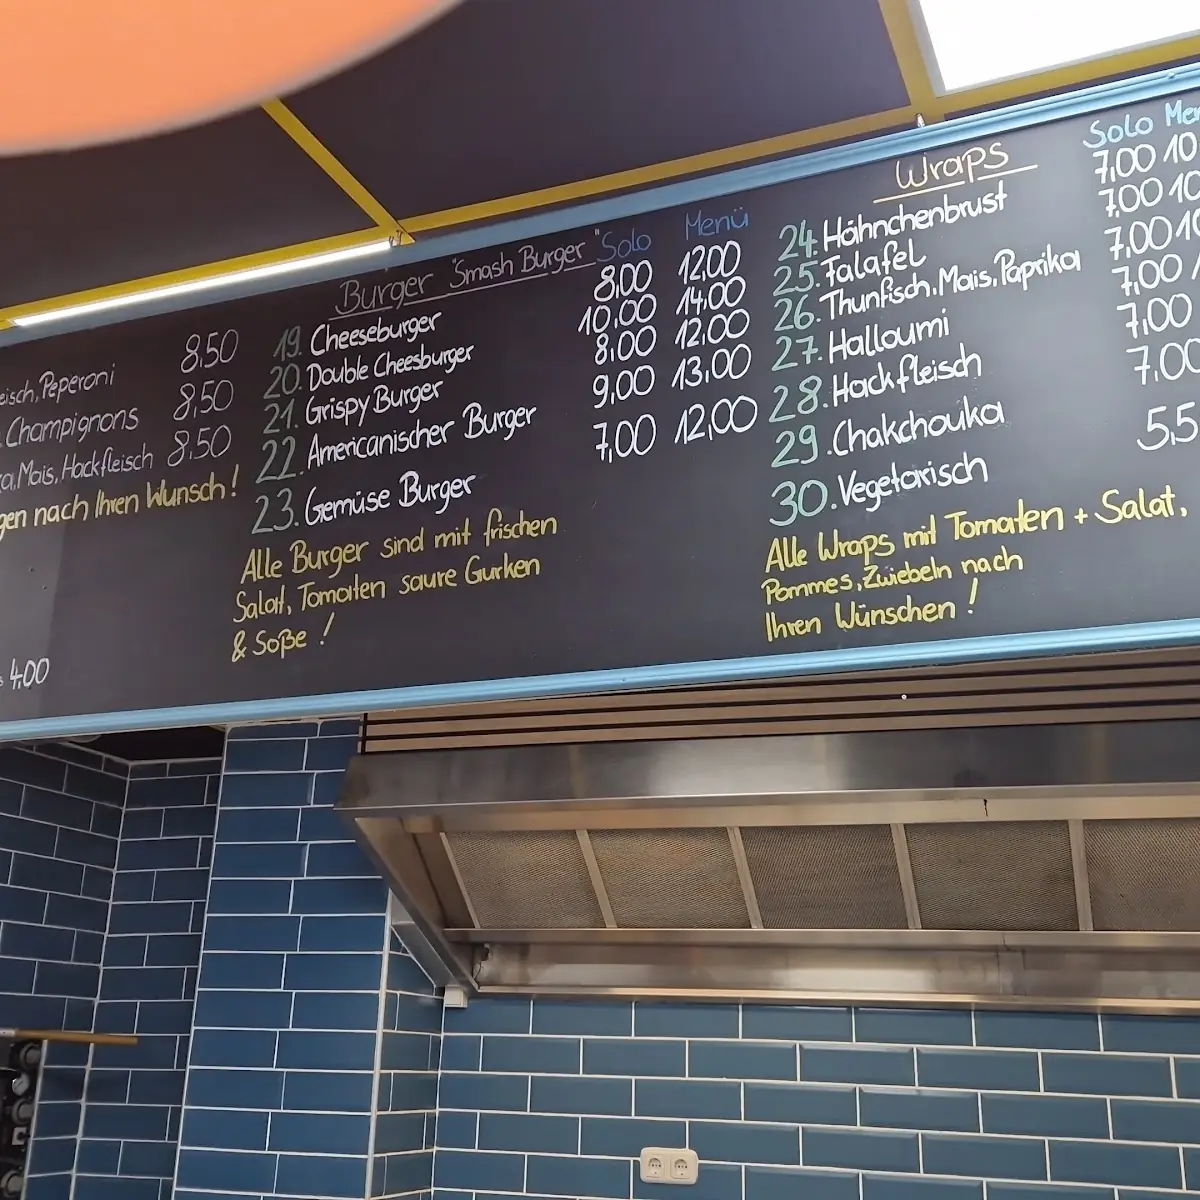 8,50
eisch, Peperoni 8,50
Champignons 8,50
a, Mais, Hackfleisch
gen nach Ihren Wunsch!
4,00
Burger "Smash Burger" Solo Menü
19. Cheeseburger 8,00 12,00
20. Double Cheesburger 10,00 14,00
21. Grispy Burger 8,00 12,00
22. Americanischer Burger 9,00 13,00
23. Gemüse Burger 7,00 12,00
Alle Burger sind mit frischen
Salat, Tomaten saure Gurken
& Soße !
Wraps Solo Men
24. Hähnchenbrust 7,00 10
25. Falafel 7,00 10
26. Thunfisch, Mais, Paprika 7,00 10
27. Halloumi 7,00 1
28. Hackfleisch 7,00
29. Chakchouka 7,00
30. Vegetarisch 5,5
Alle Wraps mit Tomaten + Salat,
Pommes, Zwiebeln nach
Ihren Wünschen !